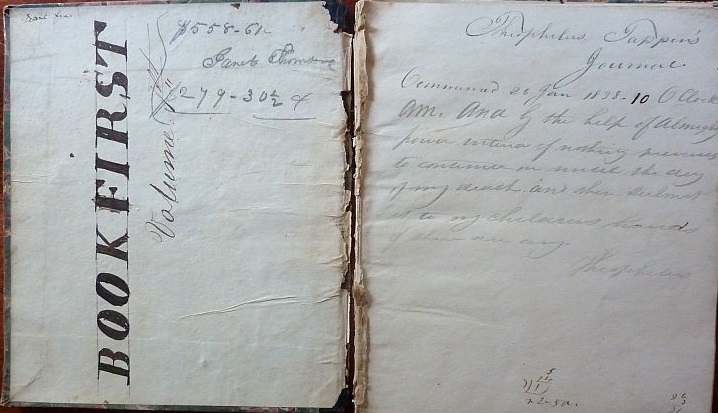 BOOK FIRST
Volume
$558-61
Janet Thomson
279-30½ 4
Theophilus Tappin's
Journal.
Commenced 20 Jan 1828-10 O Clock
AM. And by the help of Almighty
power intend if nothing prevents
to continue in until the day
of my death. and then submit
it to my childrens hands
if there are any.
Theophilus